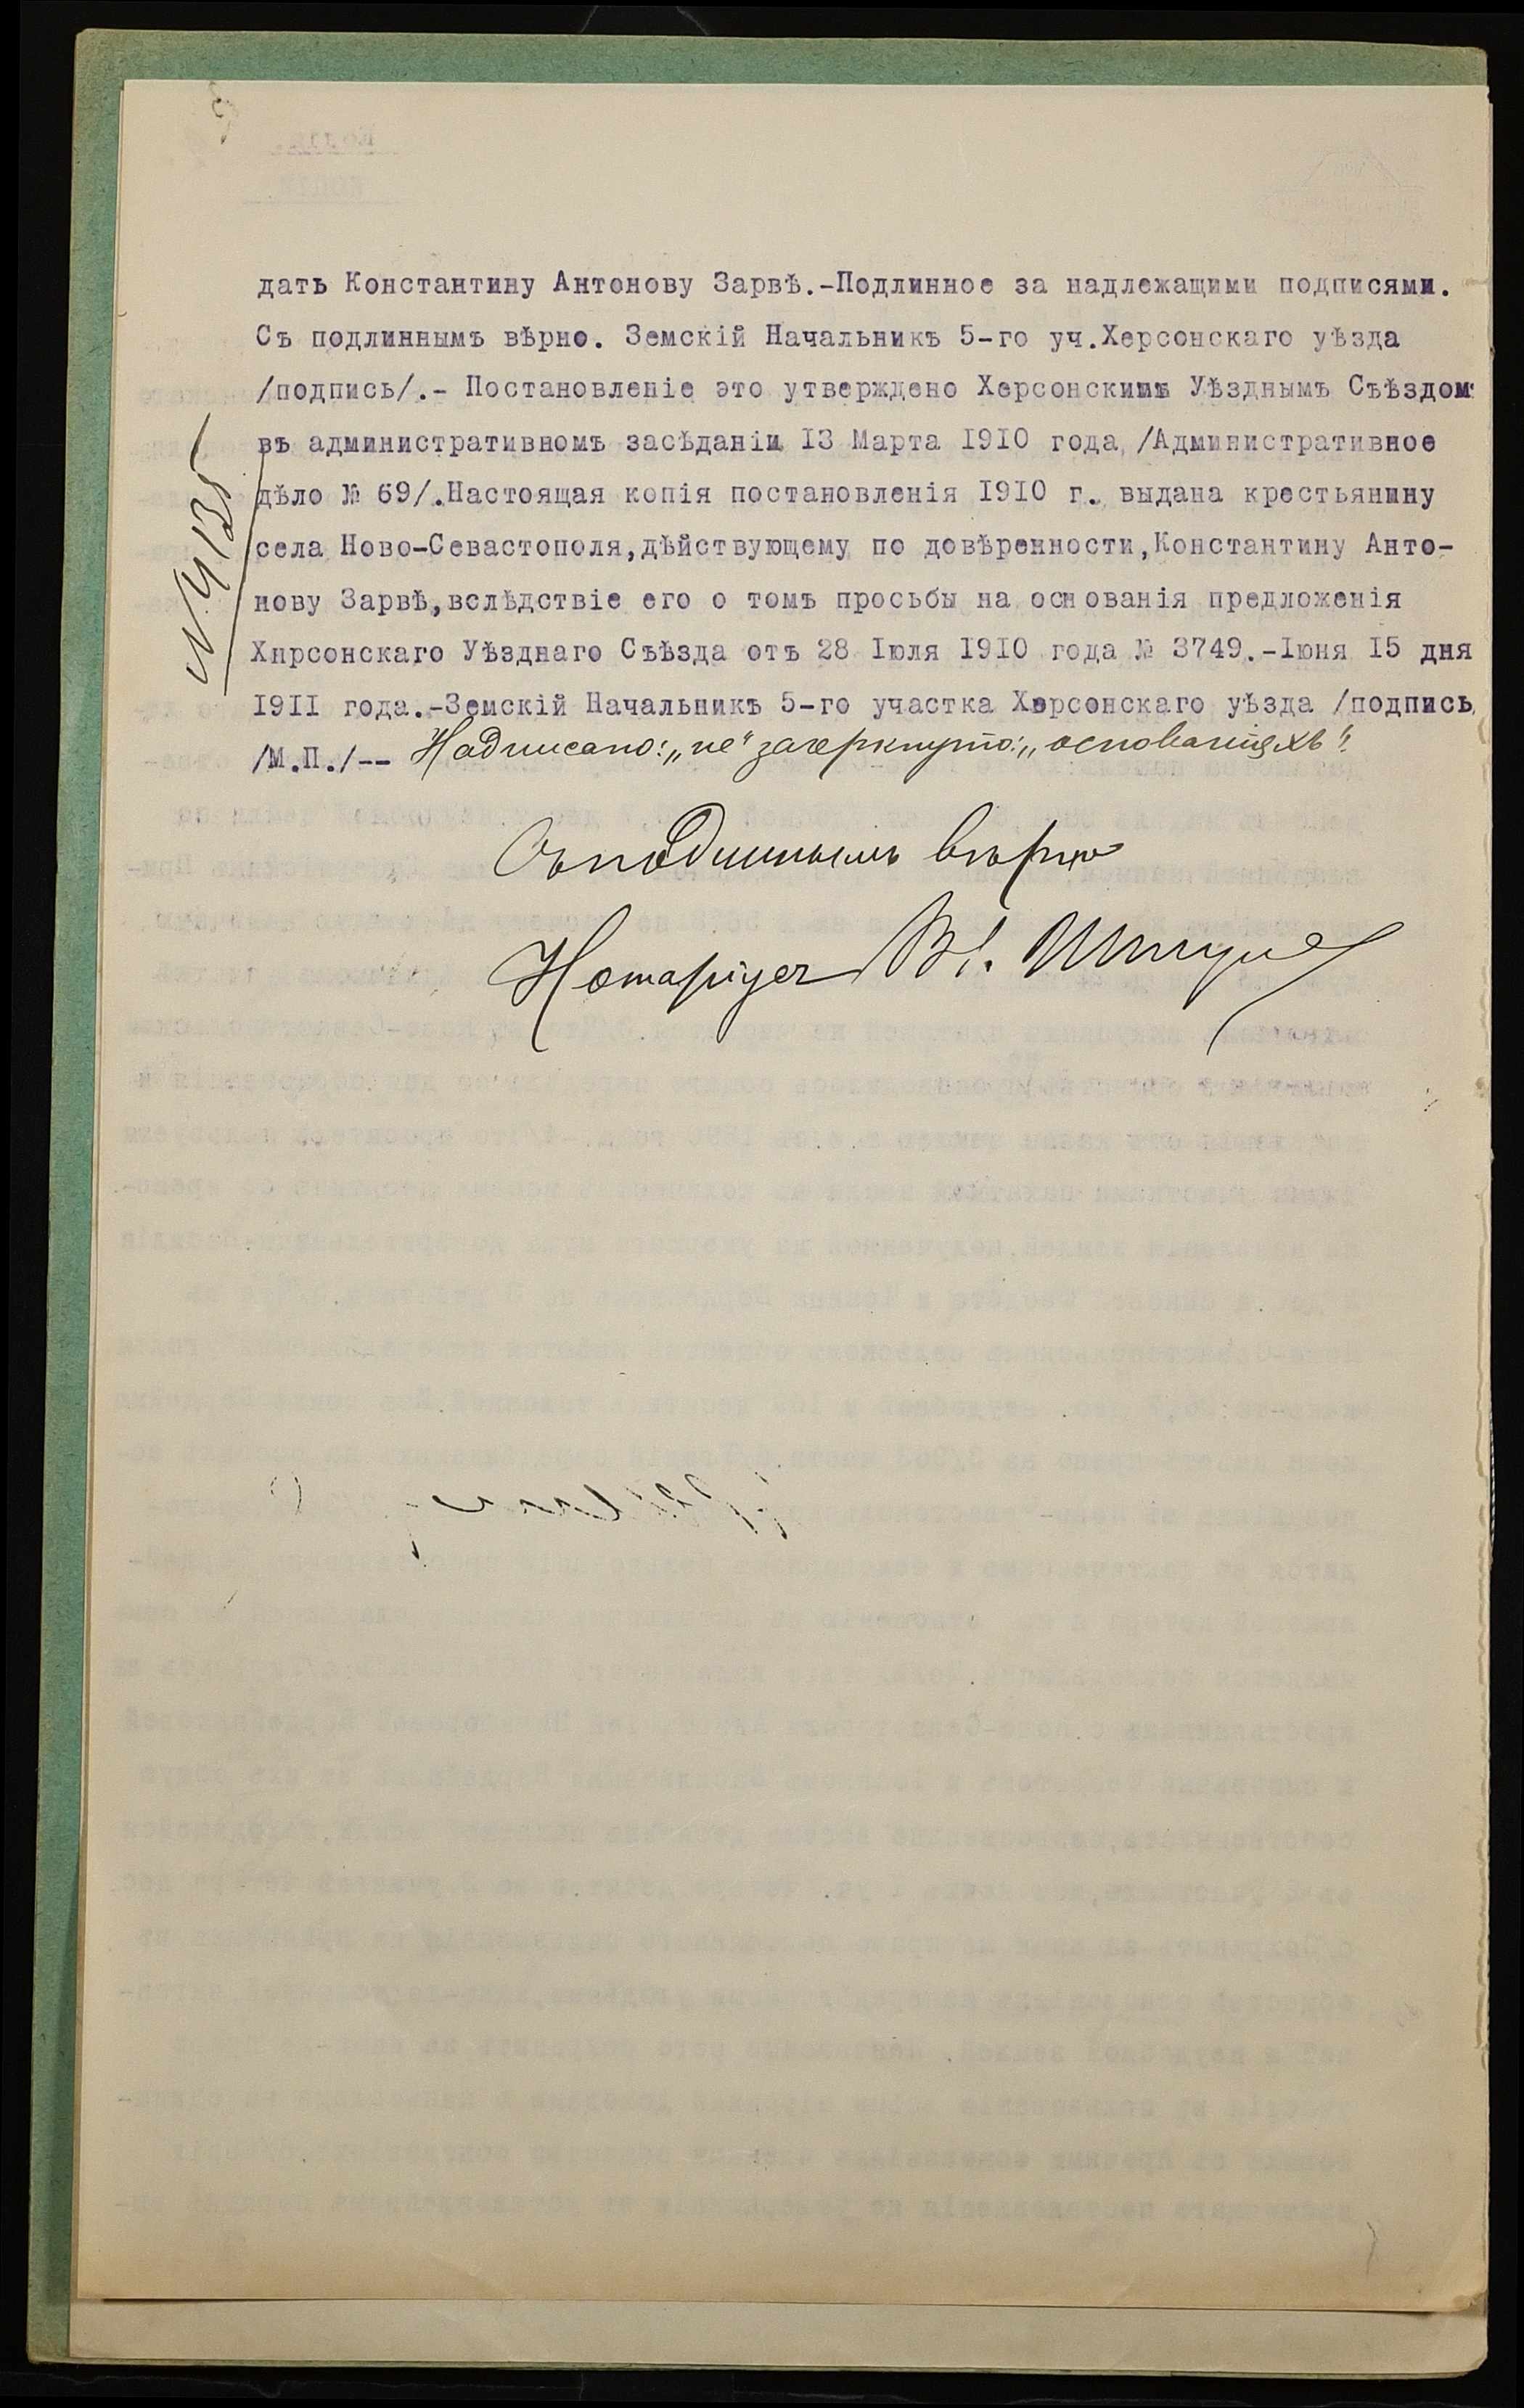 дать Константину Антонову Зарвѣ.-Подлинное за надлежащими подписями.
Съ подлиннымъ вѣрно. Земскій Начальникъ 5-го уч.Херсонскаго уѣзда
/подпись/.- Постановленіе это утверждено Херсонскимъ Уѣзднымъ Съѣздом
въ административномъ засѣданіи 13 Марта 1910 года /Административное
дѣло № 69/.Настоящая копія постановленія 1910 г. выдана крестьянину
села Ново-Севастополя,дѣйствующему по довѣренности,Константину Анто-
нову Зарвѣ,вслѣдствіе его о томъ просьбы на основанія предложенія
Хирсонскаго Уѣзднаго Съѣзда отъ 28 Іюля 1910 года № 3749.-Іюня 15 дня
1911 года.-Земскій Начальникъ 5-го участка Херсонскаго уѣзда /подпись
/М.П./-- Надписано: „не“ зачеркнуто: „основаніяхъ“.
Съ подлиннымъ вѣрно
Нотаріусъ